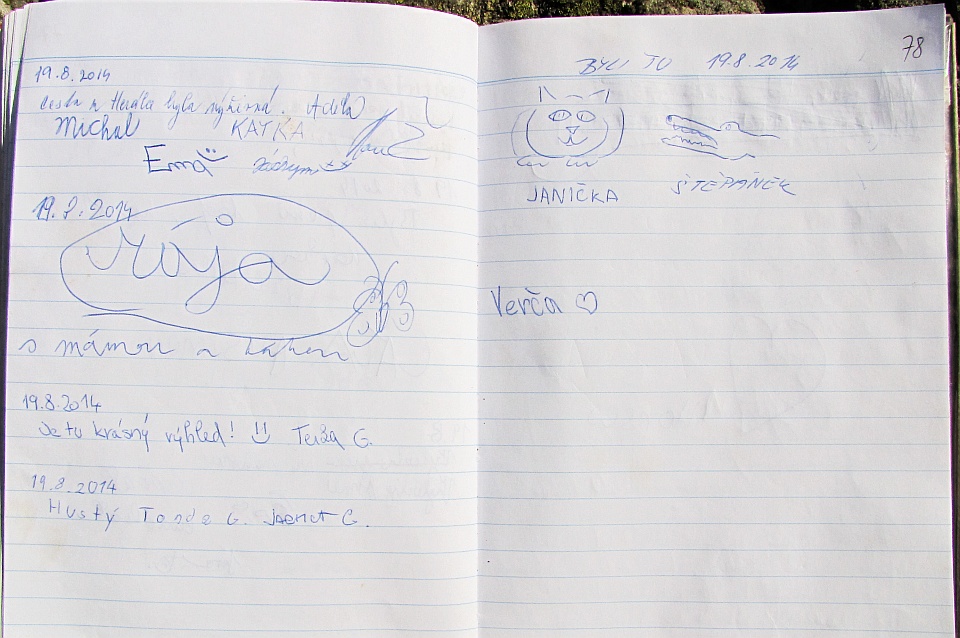 19.8.2014
cesta z Herálce byla výživná. Adéla
Michal KATKA
Ema
19.8.2014
rája
s mámou a
19.8.2014
Je tu krásný výhled! Terža G.
19.8.2014
Hustý Tonda G. G.
78
BYLI TU 19.8.2014
JANIČKA ŠTĚPÁNEK
Verča ♡